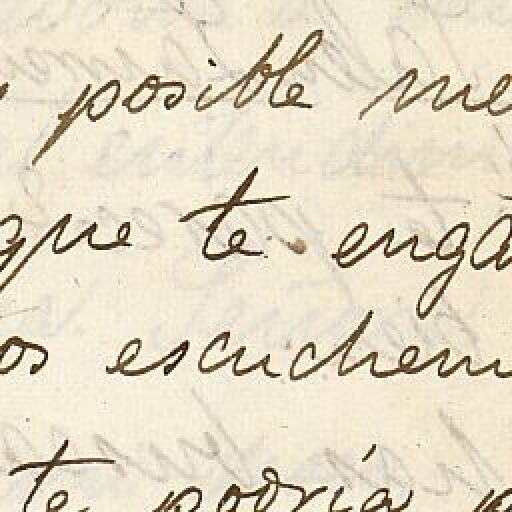 posible me
que te enga
os escuchem
te podría p